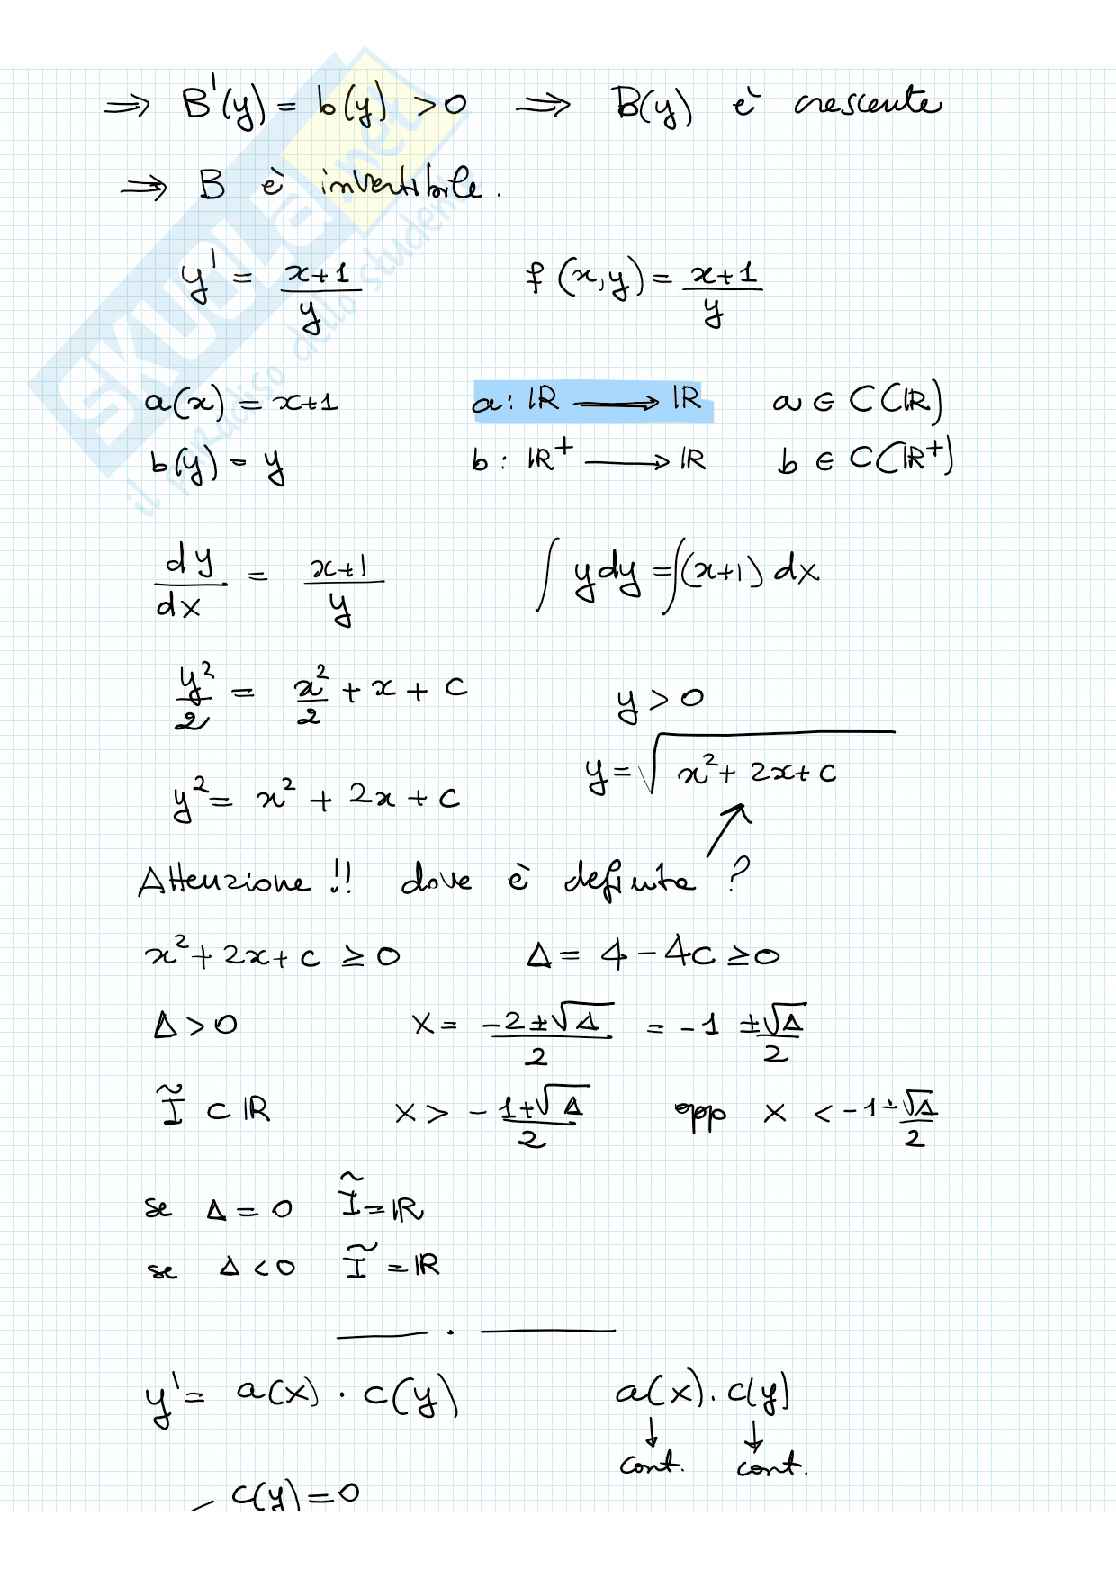 ⇒ B'(y) = b(y) > 0 ⇒ B(y) è crescente
⇒ B è invertibile.
y' = (x+1)/y f(x,y) = (x+1)/y
a(x) = x+1 a: ℝ ⟶ ℝ a ∈ C(ℝ)
b(y) = y b: ℝ⁺ ⟶ ℝ b ∈ C(ℝ⁺)
dy/dx = (x+1)/y ∫ y dy = ∫(x+1) dx
y²/2 = x²/2 + x + c y > 0
y = √(x² + 2x + c)
y² = x² + 2x + c
Attenzione!! dove è definita?
x² + 2x + c ≥ 0 Δ = 4 - 4c ≥ 0
Δ > 0 x = (-2 ± √Δ)/2 = -1 ± √Δ/2
Ĩ ⊂ ℝ x > -(1+√Δ)/2 opp x < -1 - √Δ/2
se Δ = 0 Ĩ = ℝ
se Δ < 0 Ĩ = ℝ
y' = a(x) · c(y) a(x) · c(y)
↓ ↓
cont. cont.
- c(y) = 0
SKUOLA.net
il paradiso dello studente